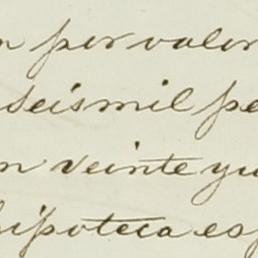 n por valor
seismil pe
n veinte yu
hipoteca es